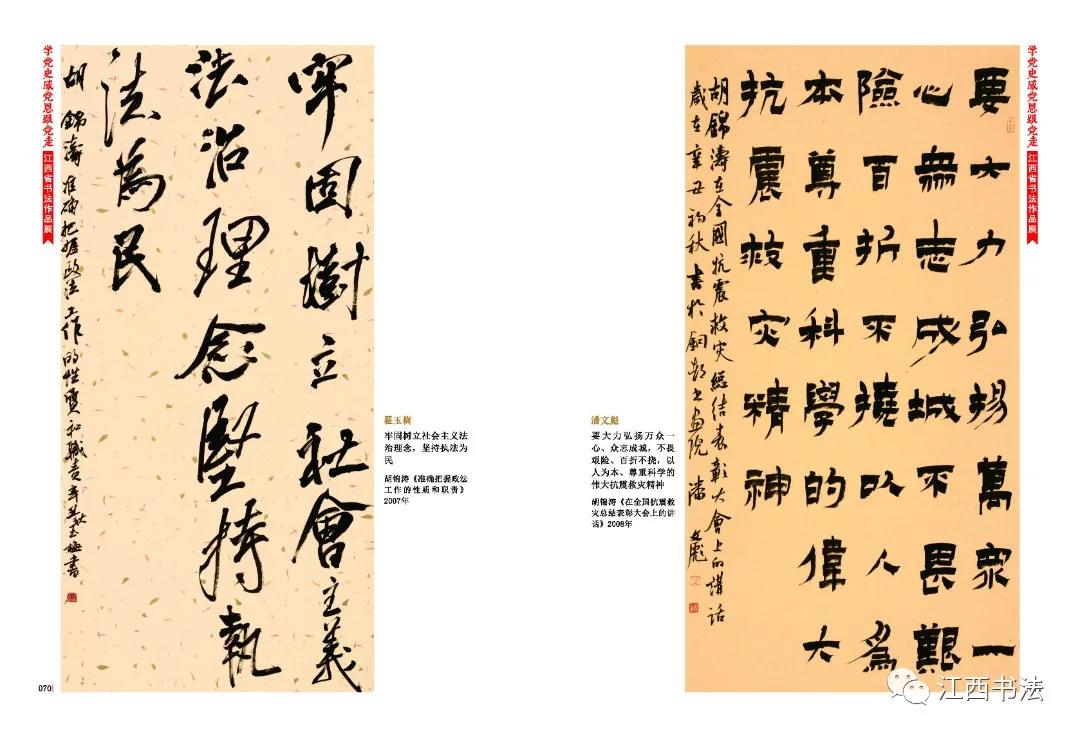 学党史感党恩跟党走
江西省书法作品展
牢固樹立社會主義
法治理念堅持執
法為民
胡錦濤准确把握政法工作的性質和職責辛丑秋玉梅書
翟玉梅
牢固树立社会主义法
治理念，坚持执法为
民
胡锦涛《准确把握政法
工作的性质和职责》
2007年
070
潘文彪
要大力弘扬万众一
心、众志成城，不畏
艰险、百折不挠，以
人为本、尊重科学的
伟大抗震救灾精神
胡锦涛《在全国抗震救
灾总结表彰大会上的讲
话》2008年
要大力弘揚萬眾一
心眾志成城不畏艱
險百折不撓以人為
本尊重科學的偉大
抗震救灾精神
胡錦濤在全國抗震救灾總結表彰大會上的講話
歲在辛丑初秋書於銅都書畫院潘文彪
学党史感党恩跟党走
江西省书法作品展
江西书法